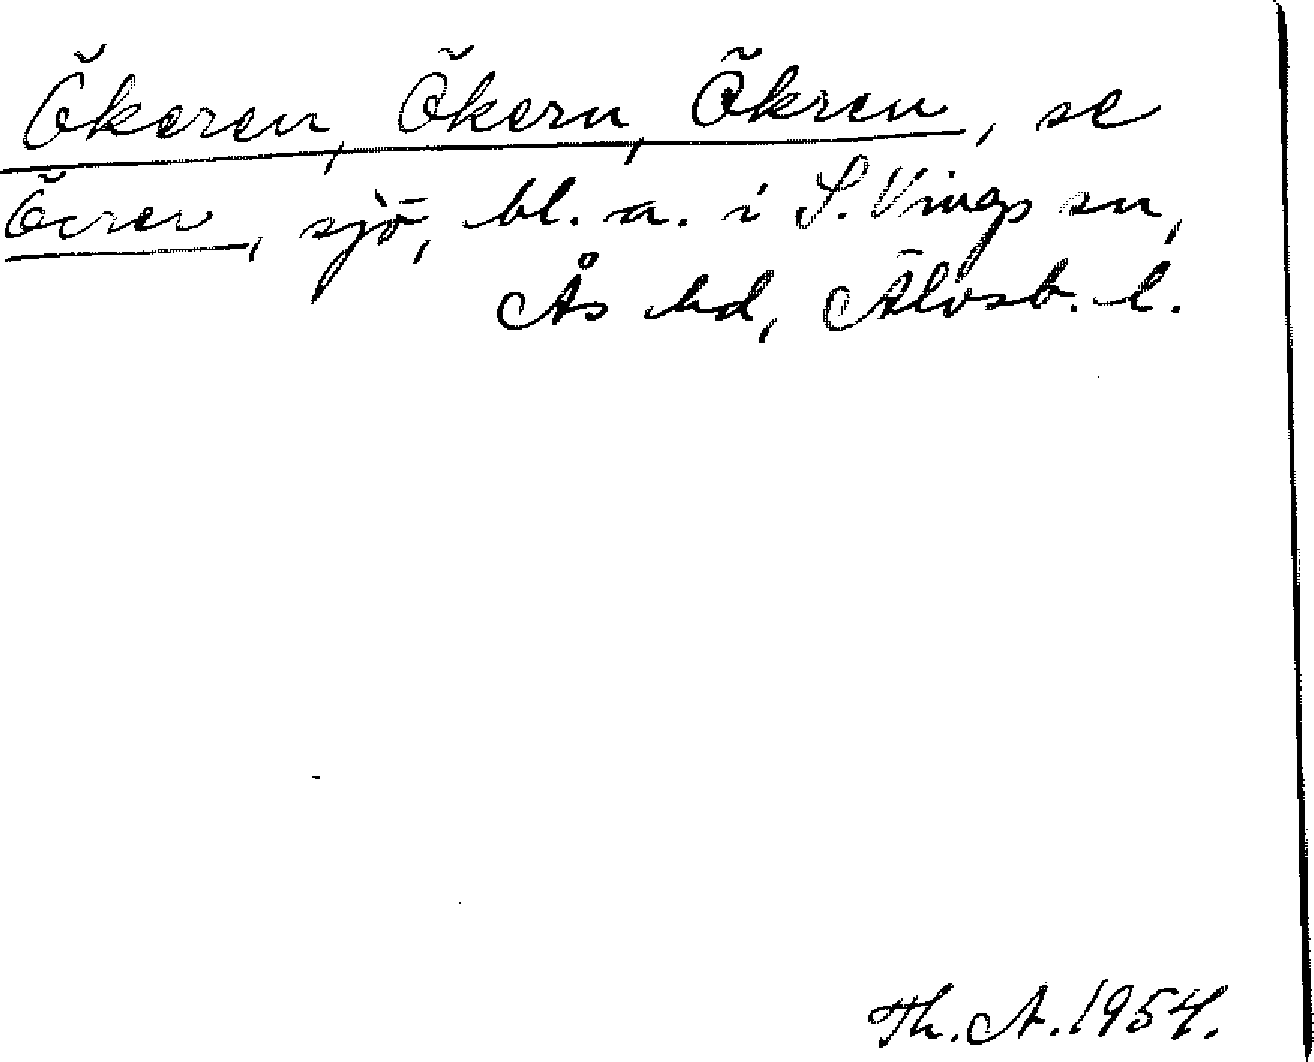 Ökeren, Ökern, Ökren, se
sjö, bl. a. i S. Vings sn,
Ås hd, Älvsb. l.
Th. A. 1954.